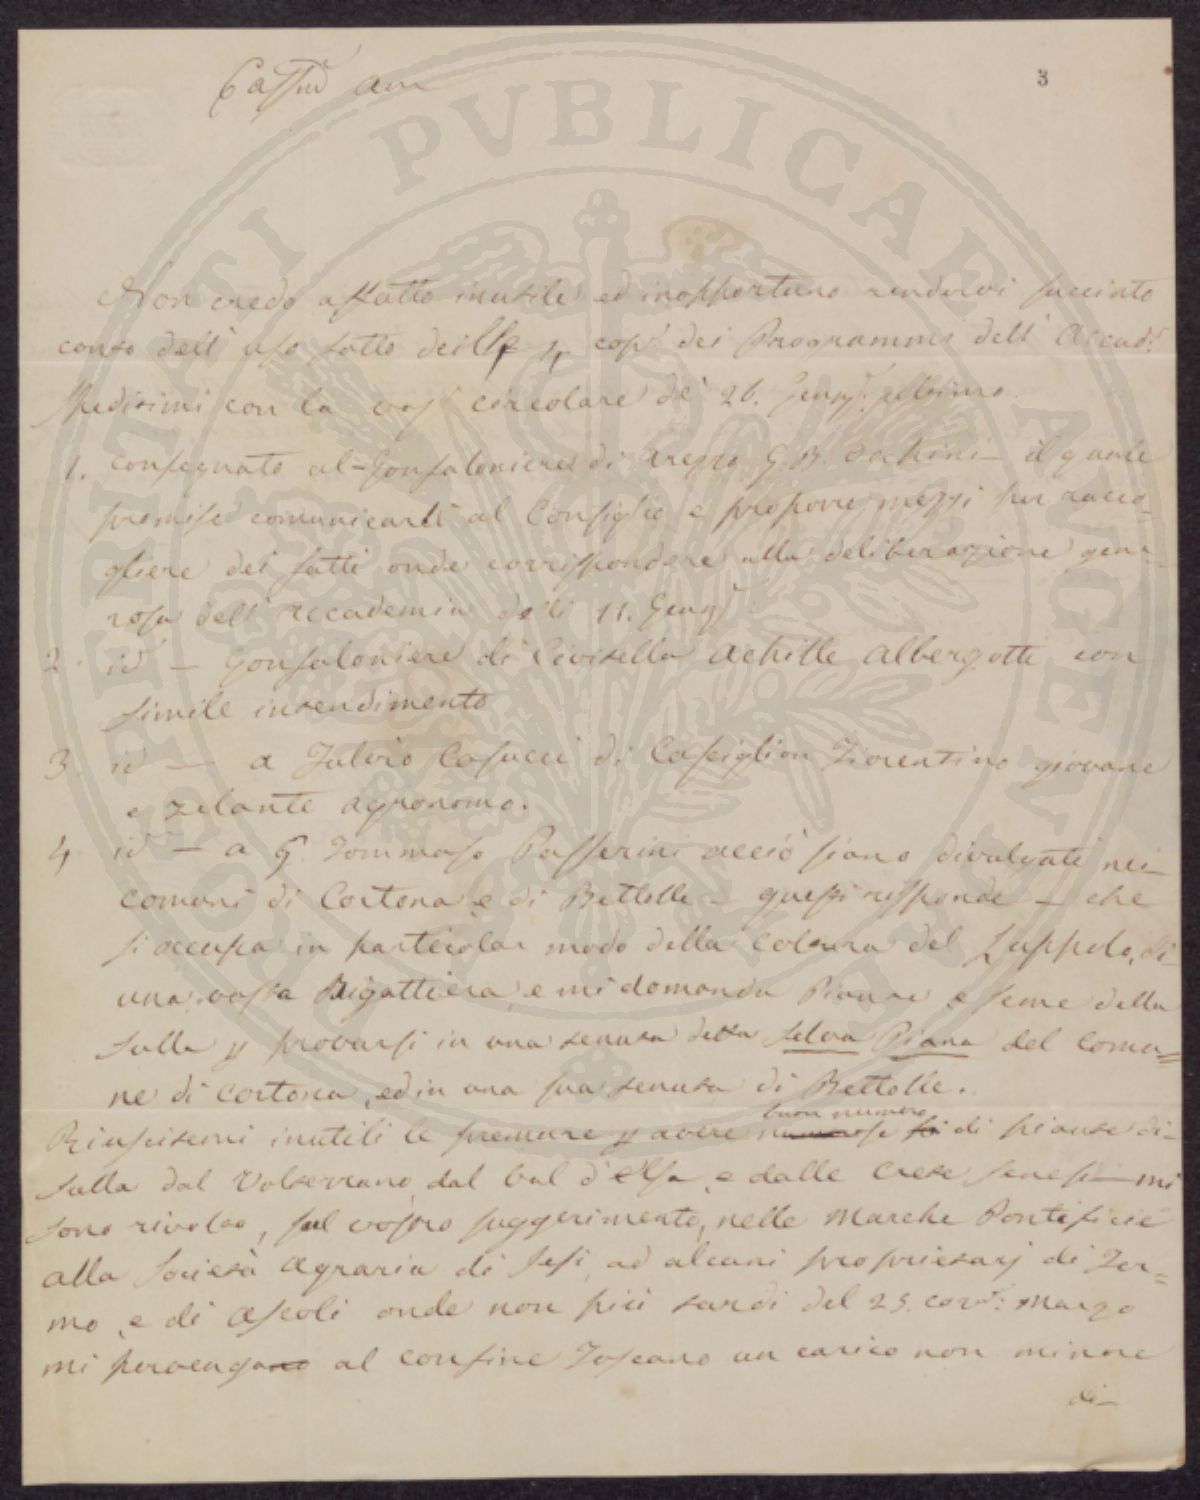 3
Non credo affatto inutile ed inopportuno rendervi succinto
conto dell' uso fatto delle 4 copie dei Programmi dell' Accad.
speditimi con la circolare de' 26. Genn.
1. consegnato al Gonfaloniere di Arezzo G. B. il quale
promise comunicarli al Consiglio e proporre mezzi per racco=
gliere dei fatti onde corrispondere alla deliberazione gene=
rosa dell' Accademia delli 11. Genn.
2. id - Gonfaloniere di Civitella Achille Albergotti con
simile intendimento
3. id - a Fulvio Casucci di Castiglion Fiorentino giovane
e zelante agronomo.
4. id - a G. Tommaso Passerini acciò siano divulgati nei
comuni di Cortona e di Bettolle - questi risponde - che
si occupa in particolar modo della coltura del Luppolo, di
una vasta Bigattiera, e mi domanda Piante e seme della
Sulla p provarsi in una tenuta detta Selva Piana del Comu=
ne di Cortona, ed in una sua tenuta di Bettolle.
Riuscitemi inutili le premure p avere numerose buon numero di piante di
Sulla dal Volterrano, dal Val d'Elsa, e dalle Crete senesi mi
sono rivolto, sul vostro suggerimento, nelle Marche Pontificie
alla Società Agraria di Jesi, ad alcuni proprietarj di Fer=
mo, e di Ascoli onde non più tardi del 25. corr: Marzo
mi pervengano al confine Toscano un carico non minore
di